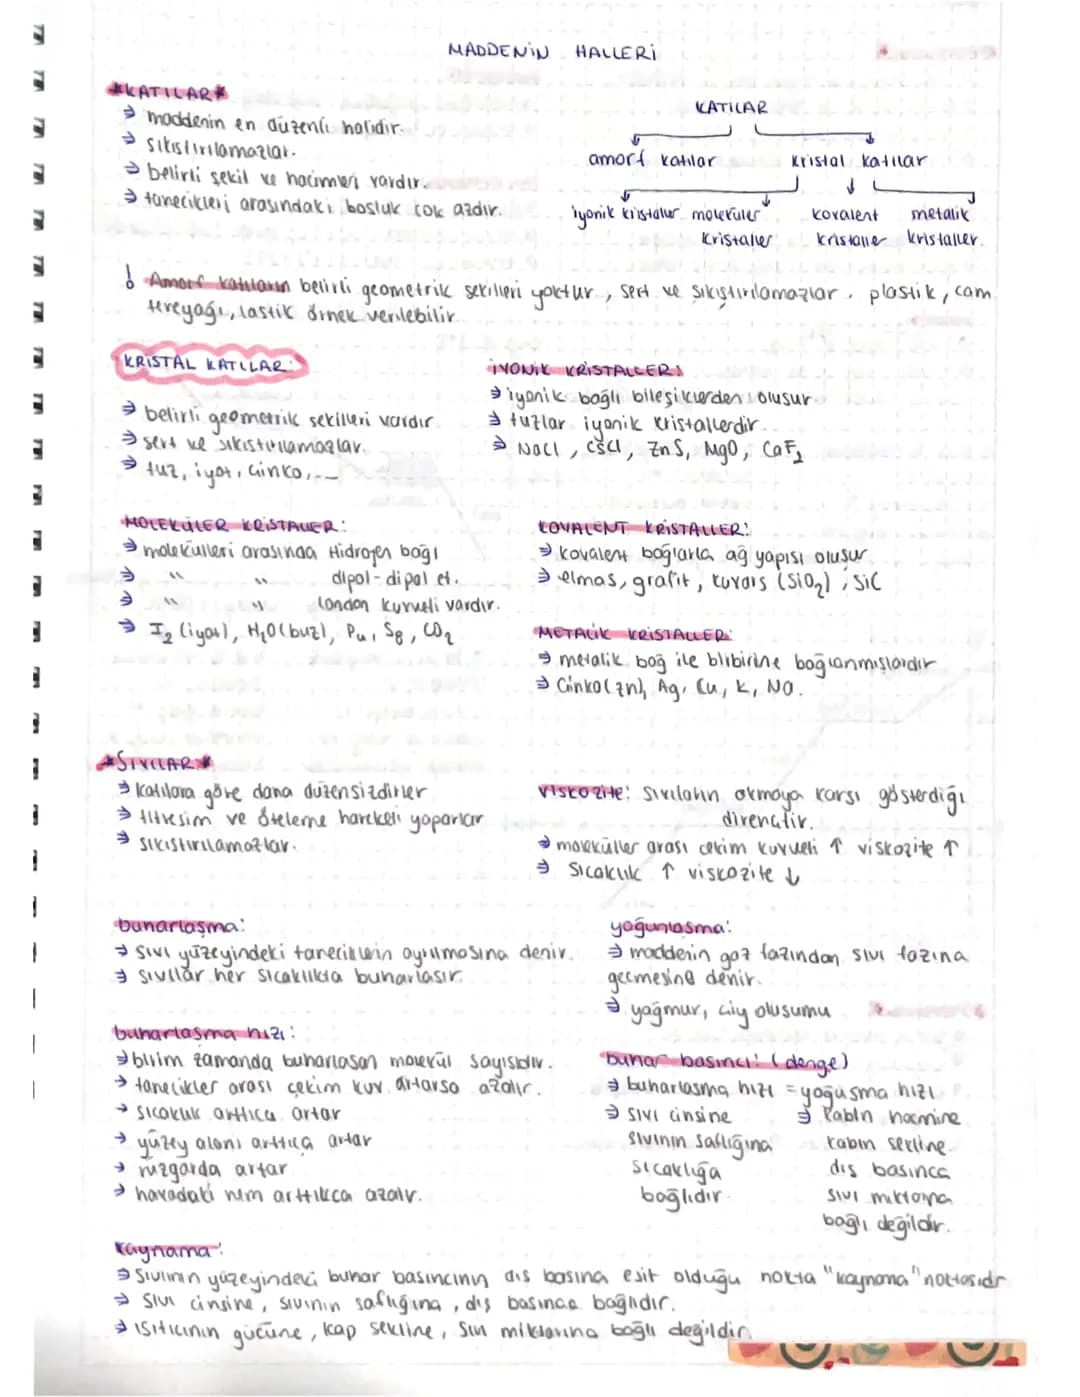 MADDENİN HALLERİ
*KATILAR*
→ maddenin en düzenli halidir.
→ sıkıştırılamazlar.
→ belirli şekil ve hacimleri vardır.
→ tanecikleri arasındaki boşluk çok azdır.
KATILAR
amorf katılar kristal katılar
iyonik kristaller moleküler kovalent metalik
kristaller kristaller kristaller.
! Amorf katıların belirli geometrik şekilleri yoktur, sert ve sıkıştırılamazlar. plastik, cam
tereyağı, lastik örnek verilebilir.
KRİSTAL KATILAR:
→ belirli geometrik şekilleri vardır
→ sert ve sıkıştırılamazlar.
→ tuz, iyot, çinko,...
İYONİK KRİSTALLER:
→ iyonik bağlı bileşiklerden oluşur.
→ tuzlar iyonik kristallerdir.
→ NaCl, CsCl, ZnS, MgO, CaF₂
MOLEKÜLER KRİSTALLER:
→ molekülleri arasında Hidrojen bağı
→ " " dipol-dipol et.
→ " " london kuvveti vardır.
→ I₂ (iyot), H₂O (buz), P₄, S₈, CO₂
KOVALENT KRİSTALLER:
→ kovalent bağlarla ağ yapısı oluşur
→ elmas, grafit, kuvars (SiO₂), SiC
METALİK KRİSTALLER:
→ metalik bağ ile birbirine bağlanmışlardır
→ Çinko (Zn), Ag, Cu, K, Na.
*SIVILAR*
→ katılara göre daha düzensizdirler
→ titreşim ve öteleme hareketi yaparlar
→ sıkıştırılamazlar.
viskozite: sıvıların akmaya karşı gösterdiği
dirençtir.
→ moleküller arası çekim kuvveti ↑ viskozite ↑
→ Sıcaklık ↑ viskozite ↓
buharlaşma:
→ sıvı yüzeyindeki taneciklerin ayrılmasına denir.
→ sıvılar her sıcaklıkta buharlaşır.
yoğunlaşma:
→ maddenin gaz fazından sıvı fazına
geçmesine denir.
→ yağmur, çiy oluşumu
buharlaşma hızı:
→ birim zamanda buharlaşan molekül sayısıdır.
→ tanecikler arası çekim kuv. artarsa azalır.
→ sıcaklık arttıça artar
→ yüzey alanı arttıça artar
→ rüzgarda artar
→ havadaki nem arttıkça azalır.
buhar basıncı: (denge)
→ buharlaşma hızı = yoğuşma hızı
→ sıvı cinsine
sıvının saflığına
sıcaklığa
bağlıdır.
→ kabın hacmine
kabın şekline
dış basınca
sıvı miktarına
bağlı değildir.
kaynama:
→ Sıvının yüzeyindeki buhar basıncının dış basına eşit olduğu nokta "kaynama" noktasıdır
→ Sıvı cinsine, sıvının saflığına, dış basınca bağlıdır.
→ ısıtıcının gücüne, kap şekline, sıvı miktarına bağlı değildir.